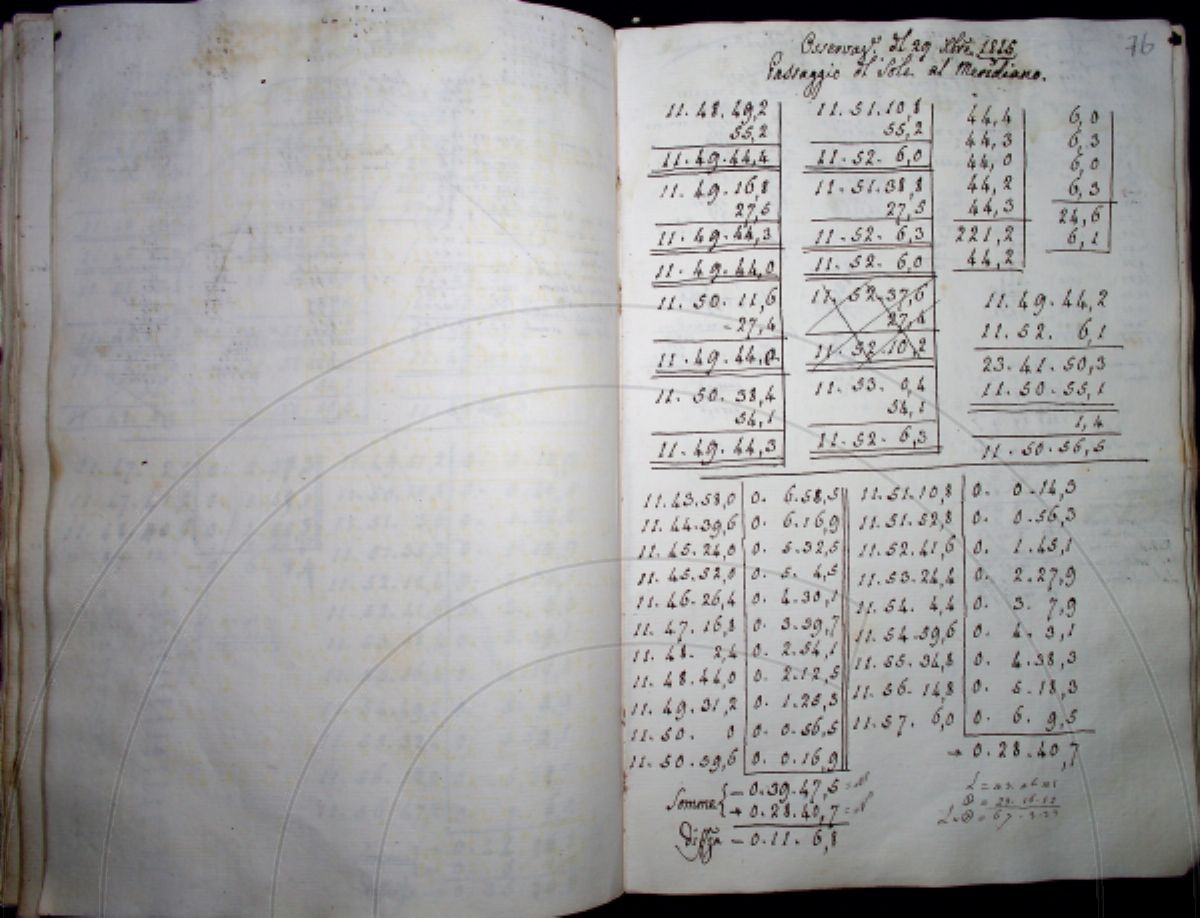 76
Osservaz.e del 29 Xbre 1825
Passaggio del Sole al Meridiano.
11. 48. 49,2
55,2
11. 49. 44,4
11. 49. 16,8
27,5
11. 49. 44,3
11. 49. 44,0
11. 50. 11,6
- 27,4
11. 49. 44,0
11. 50. 38,4
54,1
11. 49. 44,3
11. 51. 10,8
55,2
11. 52. 6,0
11. 51. 38,8
27,5
11. 52. 6,3
11. 52. 6,0
11. 52. 37,6
27,4
11. 52. 10,2
11. 53. 0,4
54,1
11. 52. 6,3
44,4
44,3
44,0
44,2
44,3
221,2
44,2
6,0
6,3
6,0
6,3
24,6
6,1
11. 49. 44,2
11. 52. 6,1
23. 41. 50,3
11. 50. 55,1
1,4
11. 50. 56,5
11. 43. 58,0 0. 6. 58,5
11. 44. 39,6 0. 6. 16,9
11. 45. 24,0 0. 5. 32,5
11. 45. 52,0 0. 5. 4,5
11. 46. 26,4 0. 4. 30,1
11. 47. 16,8 0. 3. 39,7
11. 48. 2,4 0. 2. 54,1
11. 48. 44,0 0. 2. 12,5
11. 49. 31,2 0. 1. 25,3
11. 50. 0 0. 0. 56,5
11. 50. 39,6 0. 0. 16,9
11. 51. 10,8 0. 0. 14,3
11. 51. 52,8 0. 0. 56,3
11. 52. 41,6 0. 1. 45,1
11. 53. 24,4 0. 2. 27,9
11. 54. 4,4 0. 3. 7,9
11. 54. 59,6 0. 4. 3,1
11. 55. 34,8 0. 4. 38,3
11. 56. 14,8 0. 5. 18,3
11. 57. 6,0 0. 6. 9,5
+ 0. 28. 40,7
Somme { - 0. 39. 47,5
+ 0. 28. 40,7
Diffza - 0. 11. 6,8